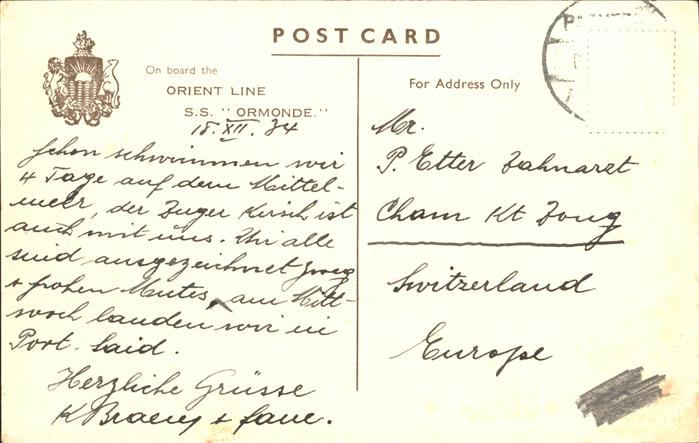 POST CARD
On board the
ORIENT LINE
S.S. "ORMONDE."
18. XII. 34
Schon schwimmen wir
4 Tage auf dem Mittel-
meer, der Zuger Kirsch ist
auch mit uns. Wir alle
sind ausgezeichnet zweg
& frohen Mutes, am Mitt-
woch landen wir in
Port-Said.
Herzliche Grüsse
K & fam.
For Address Only
Mr.
P. Etter Zahnarzt
Cham Kt Zoug
Switzerland
Europe